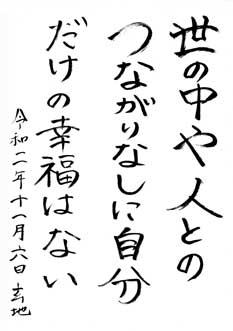 世の中や人との
つながりなしに自分
だけの幸福はない
令和二年十一月六日 玄地